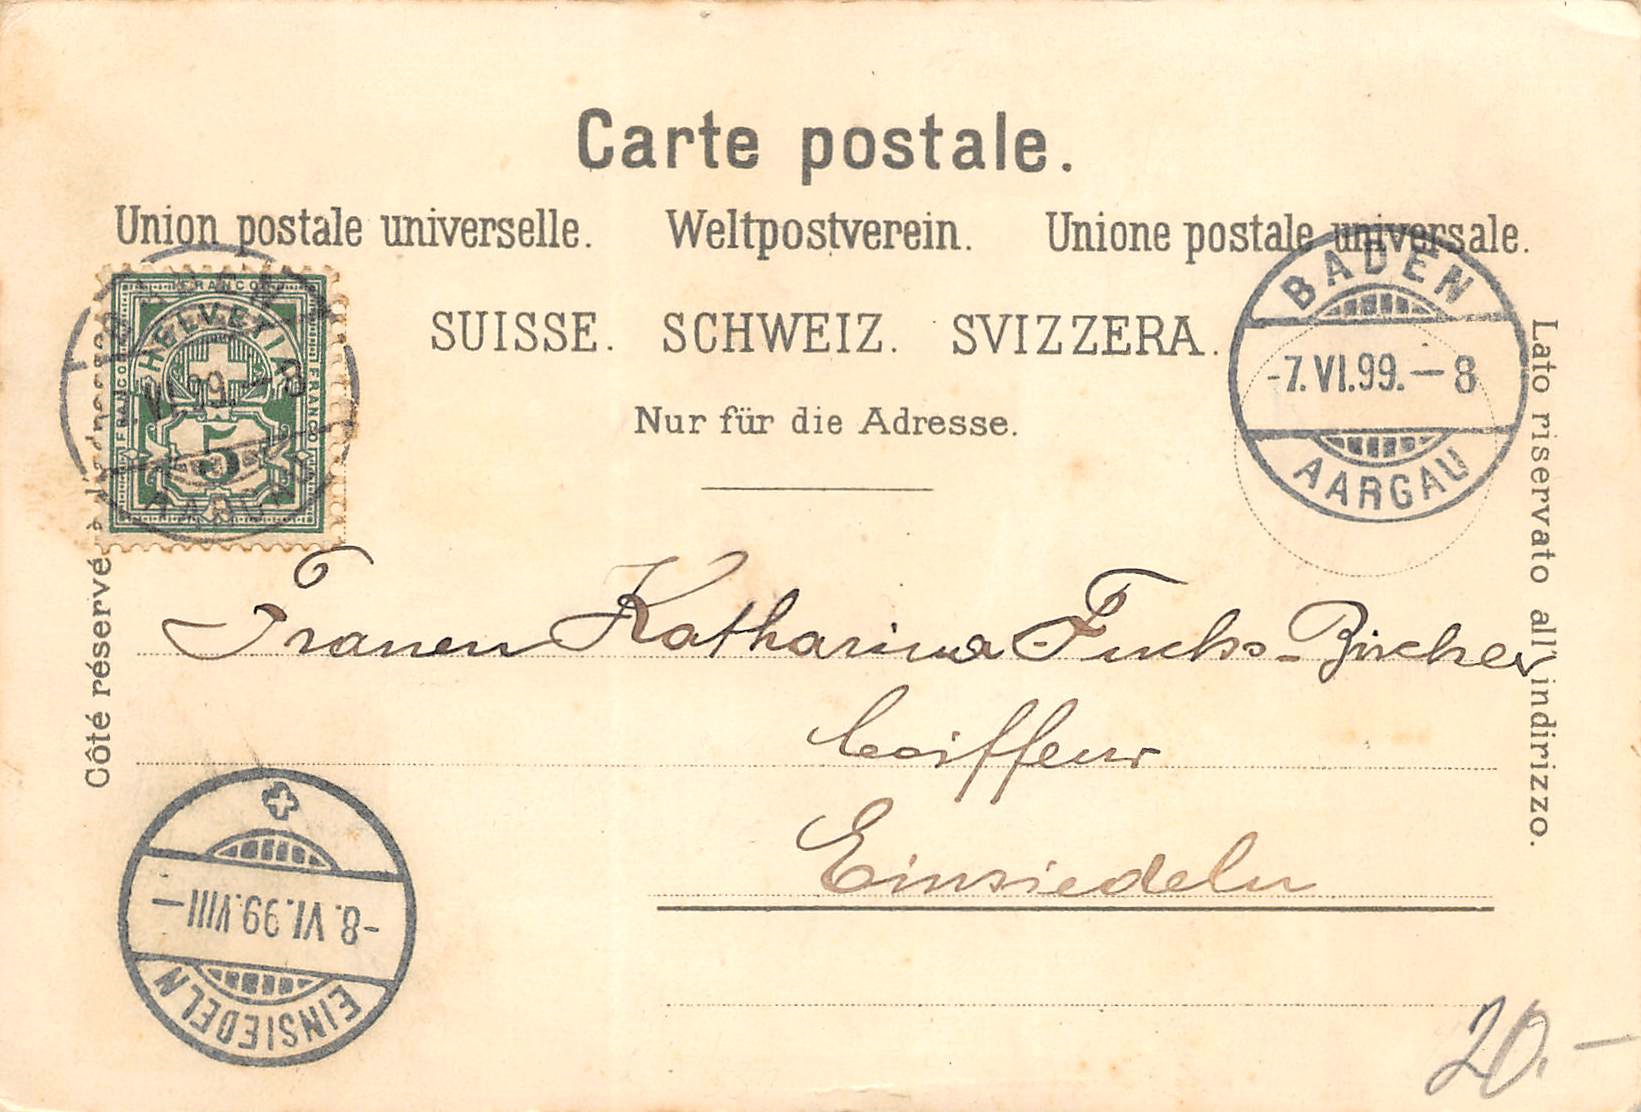 Carte postale.
Union postale universelle. Weltpostverein. Unione postale universale.
SUISSE. SCHWEIZ. SVIZZERA.
Nur für die Adresse.
FRANCO
HELVETIA
FRANCO
FRANCO
5
BADEN
-7.VI.99.-8
AARGAU
BADEN
VI.99.-8
AARGAU
Côté réservé à
Lato riservato all'indirizzo.
Frauen Katharina Fuchs-Bircher
Coiffeur
Einsiedeln
-8.VI.99.VIII-
EINSIEDELN
20.-